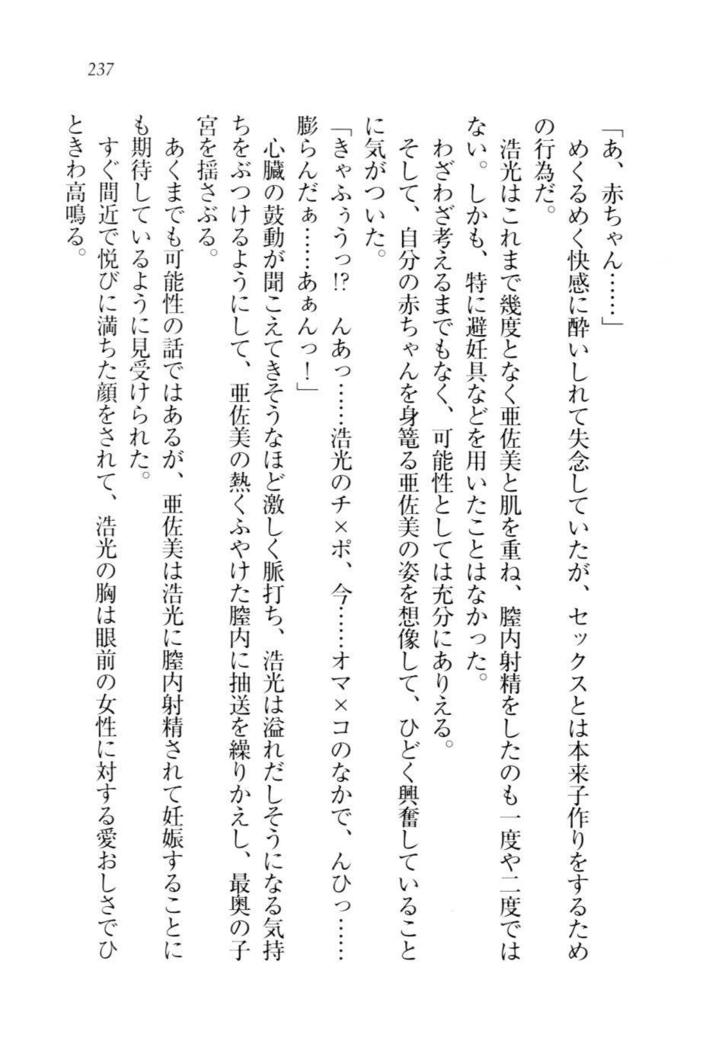 237
「あ、赤ちゃん……」
めくるめく快感に酔いしれて失念していたが、セックスとは本来子作りをするため
の行為だ。
浩光はこれまで幾度となく亜佐美と肌を重ね、膣内射精をしたのも一度や二度では
ない。しかも、特に避妊具などを用いたことはなかった。
わざわざ考えるまでもなく、可能性としては充分にありえる。
そして、自分の赤ちゃんを身篭る亜佐美の姿を想像して、ひどく興奮していること
に気がついた。
「きゃふぅうっ!?　んあっ……浩光のチ×ポ、今……オマ×コのなかで、んひっ……
膨らんだぁ……あぁんっ！」
心臓の鼓動が聞こえてきそうなほど激しく脈打ち、浩光は溢れだしそうになる気持
ちをぶつけるようにして、亜佐美の熱くふやけた膣内に抽送を繰りかえし、最奥の子
宮を揺さぶる。
あくまでも可能性の話ではあるが、亜佐美は浩光に膣内射精されて妊娠することに
も期待しているように見受けられた。
すぐ間近で悦びに満ちた顔をされて、浩光の胸は眼前の女性に対する愛おしさでひ
ときわ高鳴る。